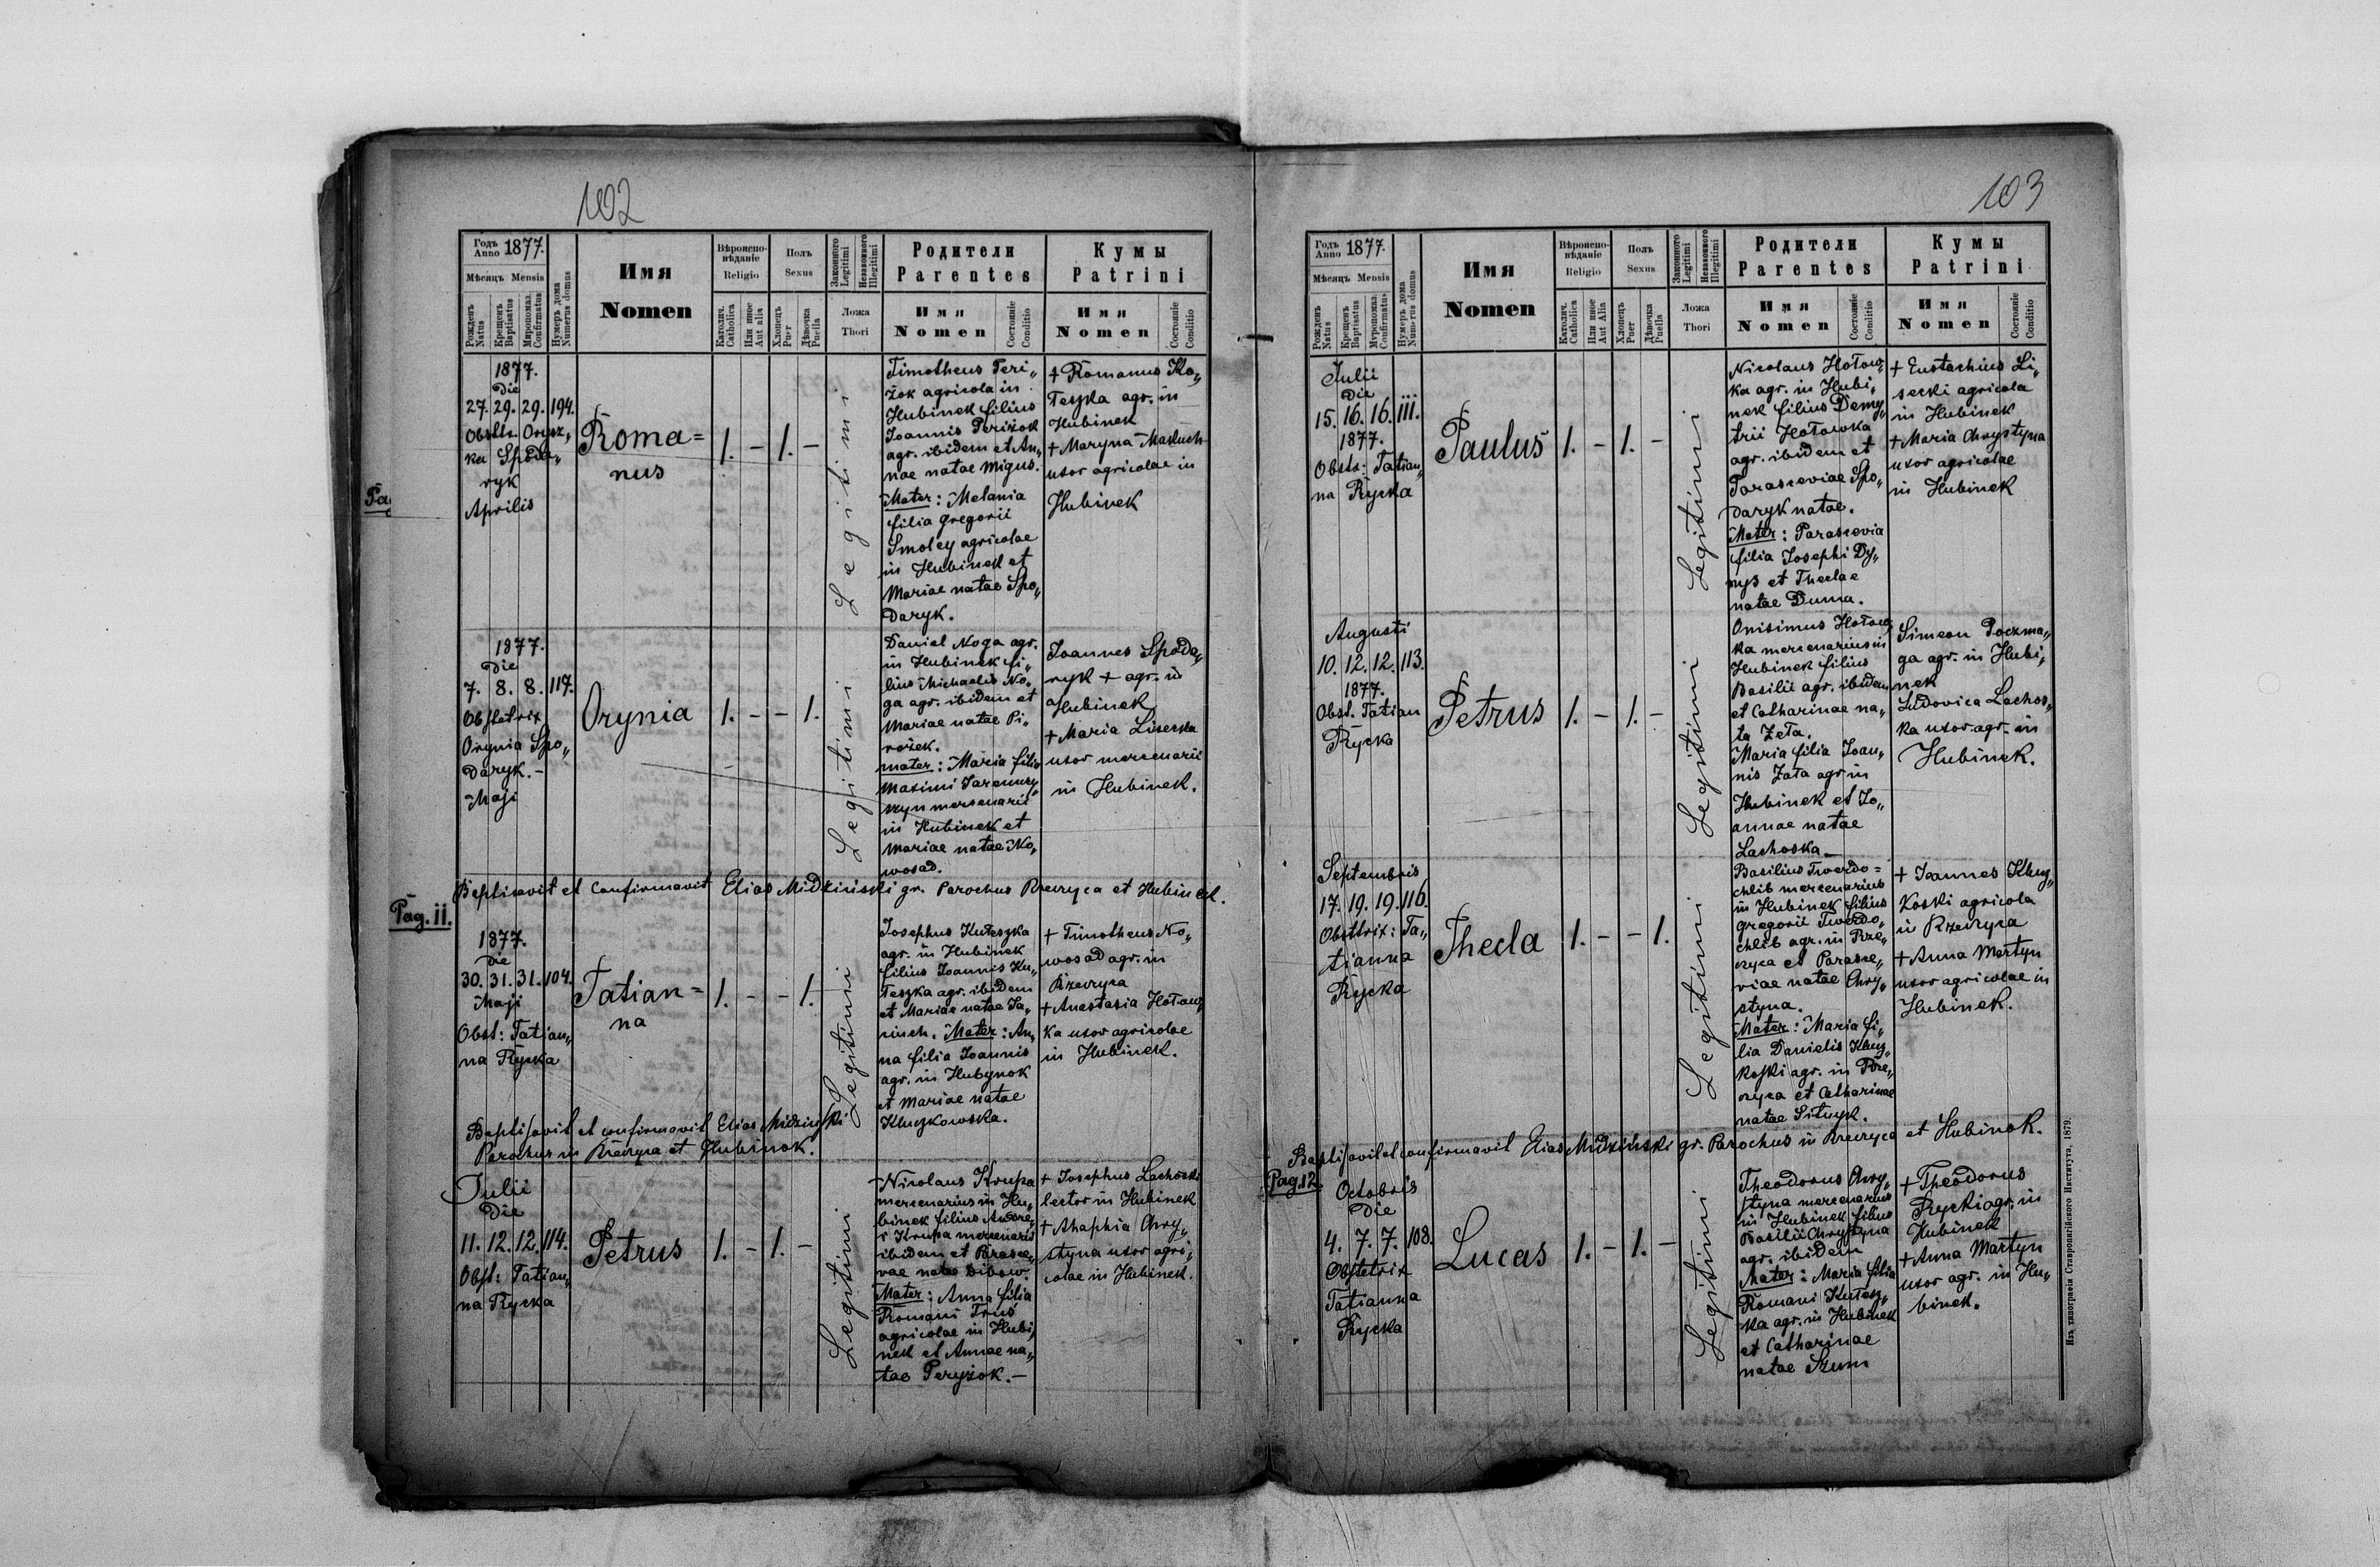 102
Годъ Anno 1877.
Мѣсяцъ Mensis
Рожденъ Natus
Крещенъ Baptisatus
Миропомаз. Confirmatus
Нумеръ дома Numerus domus
Имя
Nomen
Вѣроиспо-
вѣданіе
Religio
Католич. Catholica
Или иное Aut alia
Полъ
Sexus
Хлопецъ Puer
Дѣвочка Puella
Законного Legitimi
Незаконного Illegitimi
Ложа
Thori
Родители
Parentes
Имя
Nomen
Состояніе Conditio
Кумы
Patrini
Имя
Nomen
Состояніе Conditio
1877.
Die
27. 29. 29. 194.
Obsttr. Orysz„
ka Spoda„
ryk
Aprilis
Roma=
nus
1. – 1. –
Legitimi
Timotheus Peri„
żok agricola in
Hubinek filius
Joannis Periżok
agr. ibidem et An„
nae natae Migus.
Mater: Melania
filia Gregorii
Smoley agricolae
in Hubinek et
Mariae natae Spo„
daryk.
+ Romanus Ku„
Teszka agr. in
Hubinek
+ Maryna Maskuch
uxor agricolae in
Hubinek
1877.
Die
7. 8. 8. 117.
Obstetrix
Orynia Spo„
daryk.–
Maji
Orynia
1. – – 1.
Legitimi
Daniel Noga agr.
in Hubinek fi„
lius Michaelis No„
ga agr. ibidem et
Mariae natae Pi„
rożek.
mater: Maria filia
Maximi Jaremczy„
szyn mercenarii
in Hubinek et
Mariae natae No„
wosad.
Joannes Spoda„
ryk + agr. in
Hubinek
+ Maria Lisecka
uxor mercenarii
in Hubinek.
Baptisavit et confirmavit Elias Midziński gr. Parochus Rzeczyca et Hubinek.
Pag. 11.
1877.
Die
30. 31. 31. 104.
Maji
Obst: Tatian„
na Rycka
Tatian=
na
1. – – 1.
Legitimi
Josephus Kuteszka
agr. in Hubinek
filius Joannis Ku„
Teszka agr. ibidem
et Mariae natae Ja„
rinch. Mater: An„
na filia Joannis
agr. in Hubynok
et Mariae natae
Kluczkowska.
+ Timotheus No„
wosad agr. in
Rzeczyca
+ Anastasia Hołow„
ka uxor agricolae
in Hubinek.
Baptisavit et confirmavit Elias Midziński
Parochus in Rzeczyca et Hubinok.
Julii
Die
11. 12. 12. 114.
Obst: Tatian„
na Rycka
Petrus
1. – 1. –
Legitimi
Nicolaus Krupa
mercenarius in Hu„
binek filius Andre„
i Krupa mercenarii
ibidem et Parasce„
vae natae Dibow.
Mater: Anna filia
Romani Trus
agricolae in Hubi„
nek et Annae na„
tae Peryżok.–
+ Josephus Lachoski
lector in Hubinek
+ Ahaphia Chry„
styna uxor agri„
colae in Hubinek.
103
Годъ Anno 1877.
Мѣсяцъ Mensis
Рожденъ Natus
Крещенъ Baptisatus
Муропомаз. Confirmatus
Нумеръ дома Numerus domus
Имя
Nomen
Вѣроиспо-
вѣданіе
Religio
Католич. Catholica
Или иное Aut Alia
Полъ
Sexus
Хлопецъ Puer
Дѣвочка Puella
Законного Legitimi
Незаконного Illegitimi
Ложа
Thori
Родители
Parentes
Имя
Nomen
Состояніе Conditio
Кумы
Patrini
Имя
Nomen
Состояніе Conditio
Julii
Die
15. 16. 16. 111.
1877.
Obsts: Tatian„
na Rycka
Paulus
1. – 1. –
Legitimi
Nicolaus Hołow„
ka agr. in Hubi„
nek filius Demy„
trii Hołowka
agr. ibidem et
Parasceviae Spo„
daryk natae.
Mater: Parascevia
filia Josephi Dy„
nys et Theclae
natae Duma.
+ Eustachius Li„
secki agricola
in Hubinek
+ Maria Chrystyna
uxor agricolae
in Hubinek
Augusti
10. 12. 12. 113.
1877.
Obst. Tatian
Rycka
Petrus
1. – 1. –
Legitimi
Onisimus Hołow„
ka mercenarius in
Hubinek filius
Basilii agr. ibidem
et Catharinae na„
ta Zeta.
Maria filia Joan„
nis Zata agr in
Hubinek et Jo„
annae natae
Lachoska–
Simeon Poczma„
ga agr. in Hubi„
nek
Ludovica Lachos„
ka uxor. agr. in
Hubinek.
Septembris
17. 19. 19. 116.
Obsttrix: Ta„
tianna
Rycka
Thecla
1. – – 1.
Legitimi
Basilius Twerdo=
chlib mercenarius
in Hubinek filius
Gregorii Twerdo„
chlib agr. in Rze„
czyca et Parasce„
viae natae Chry„
styna.
Mater: Maria fi„
lia Danielis Klucz„
koski agr. in Rze„
czyca et Catharinae
natae Sitnyk.
+ Joannes Klucz„
koski agricola
in Rzeczyca
+ Anna Martyn
uxor agricolae in
Hubinek.
Baptisavit et confirmavit Elias Midziński gr. Parochus in Rzeczyca et Hubinok.
Pag. 12.
Octobris
Die
4. 7. 7. 108.
Obstetrix
Tatianna
Rycka
Lucas
1. – 1. –
Legitimi
Theodorus Chry„
styna mercenarius
in Hubinek filius
Basilii Chrystyna
agr. ibidem
Mater: Maria filia
Romani Kutesz„
ka agr. in Hubinek
et Catharinae
natae Szum
+ Theodorus
Rycki agr. in
Hubinek
+ Anna Martyn
uxor agr. in Hu„
binek.
Изъ типографіи Ставропигійского Института, 1879.